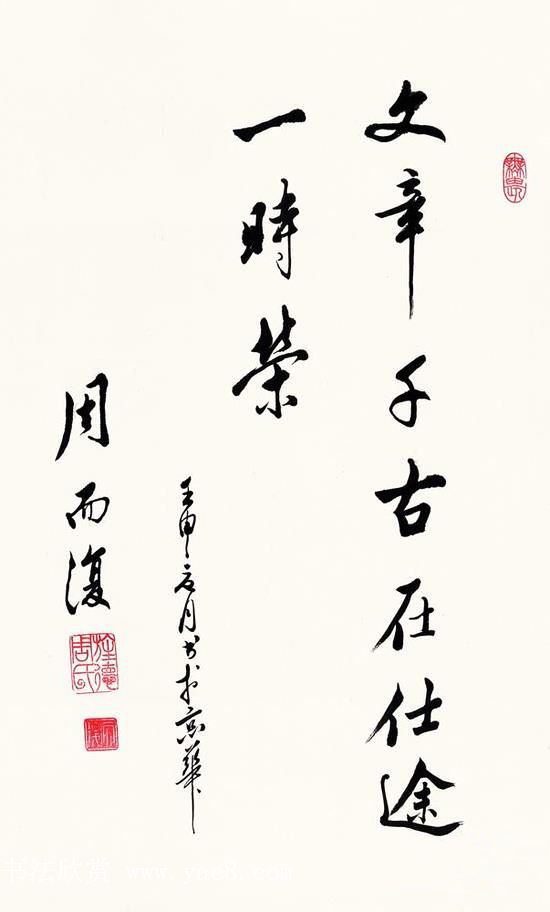 文章千古在仕途
一時榮
壬申元月书於京華
周而復
书法欣赏 www.yac8.com